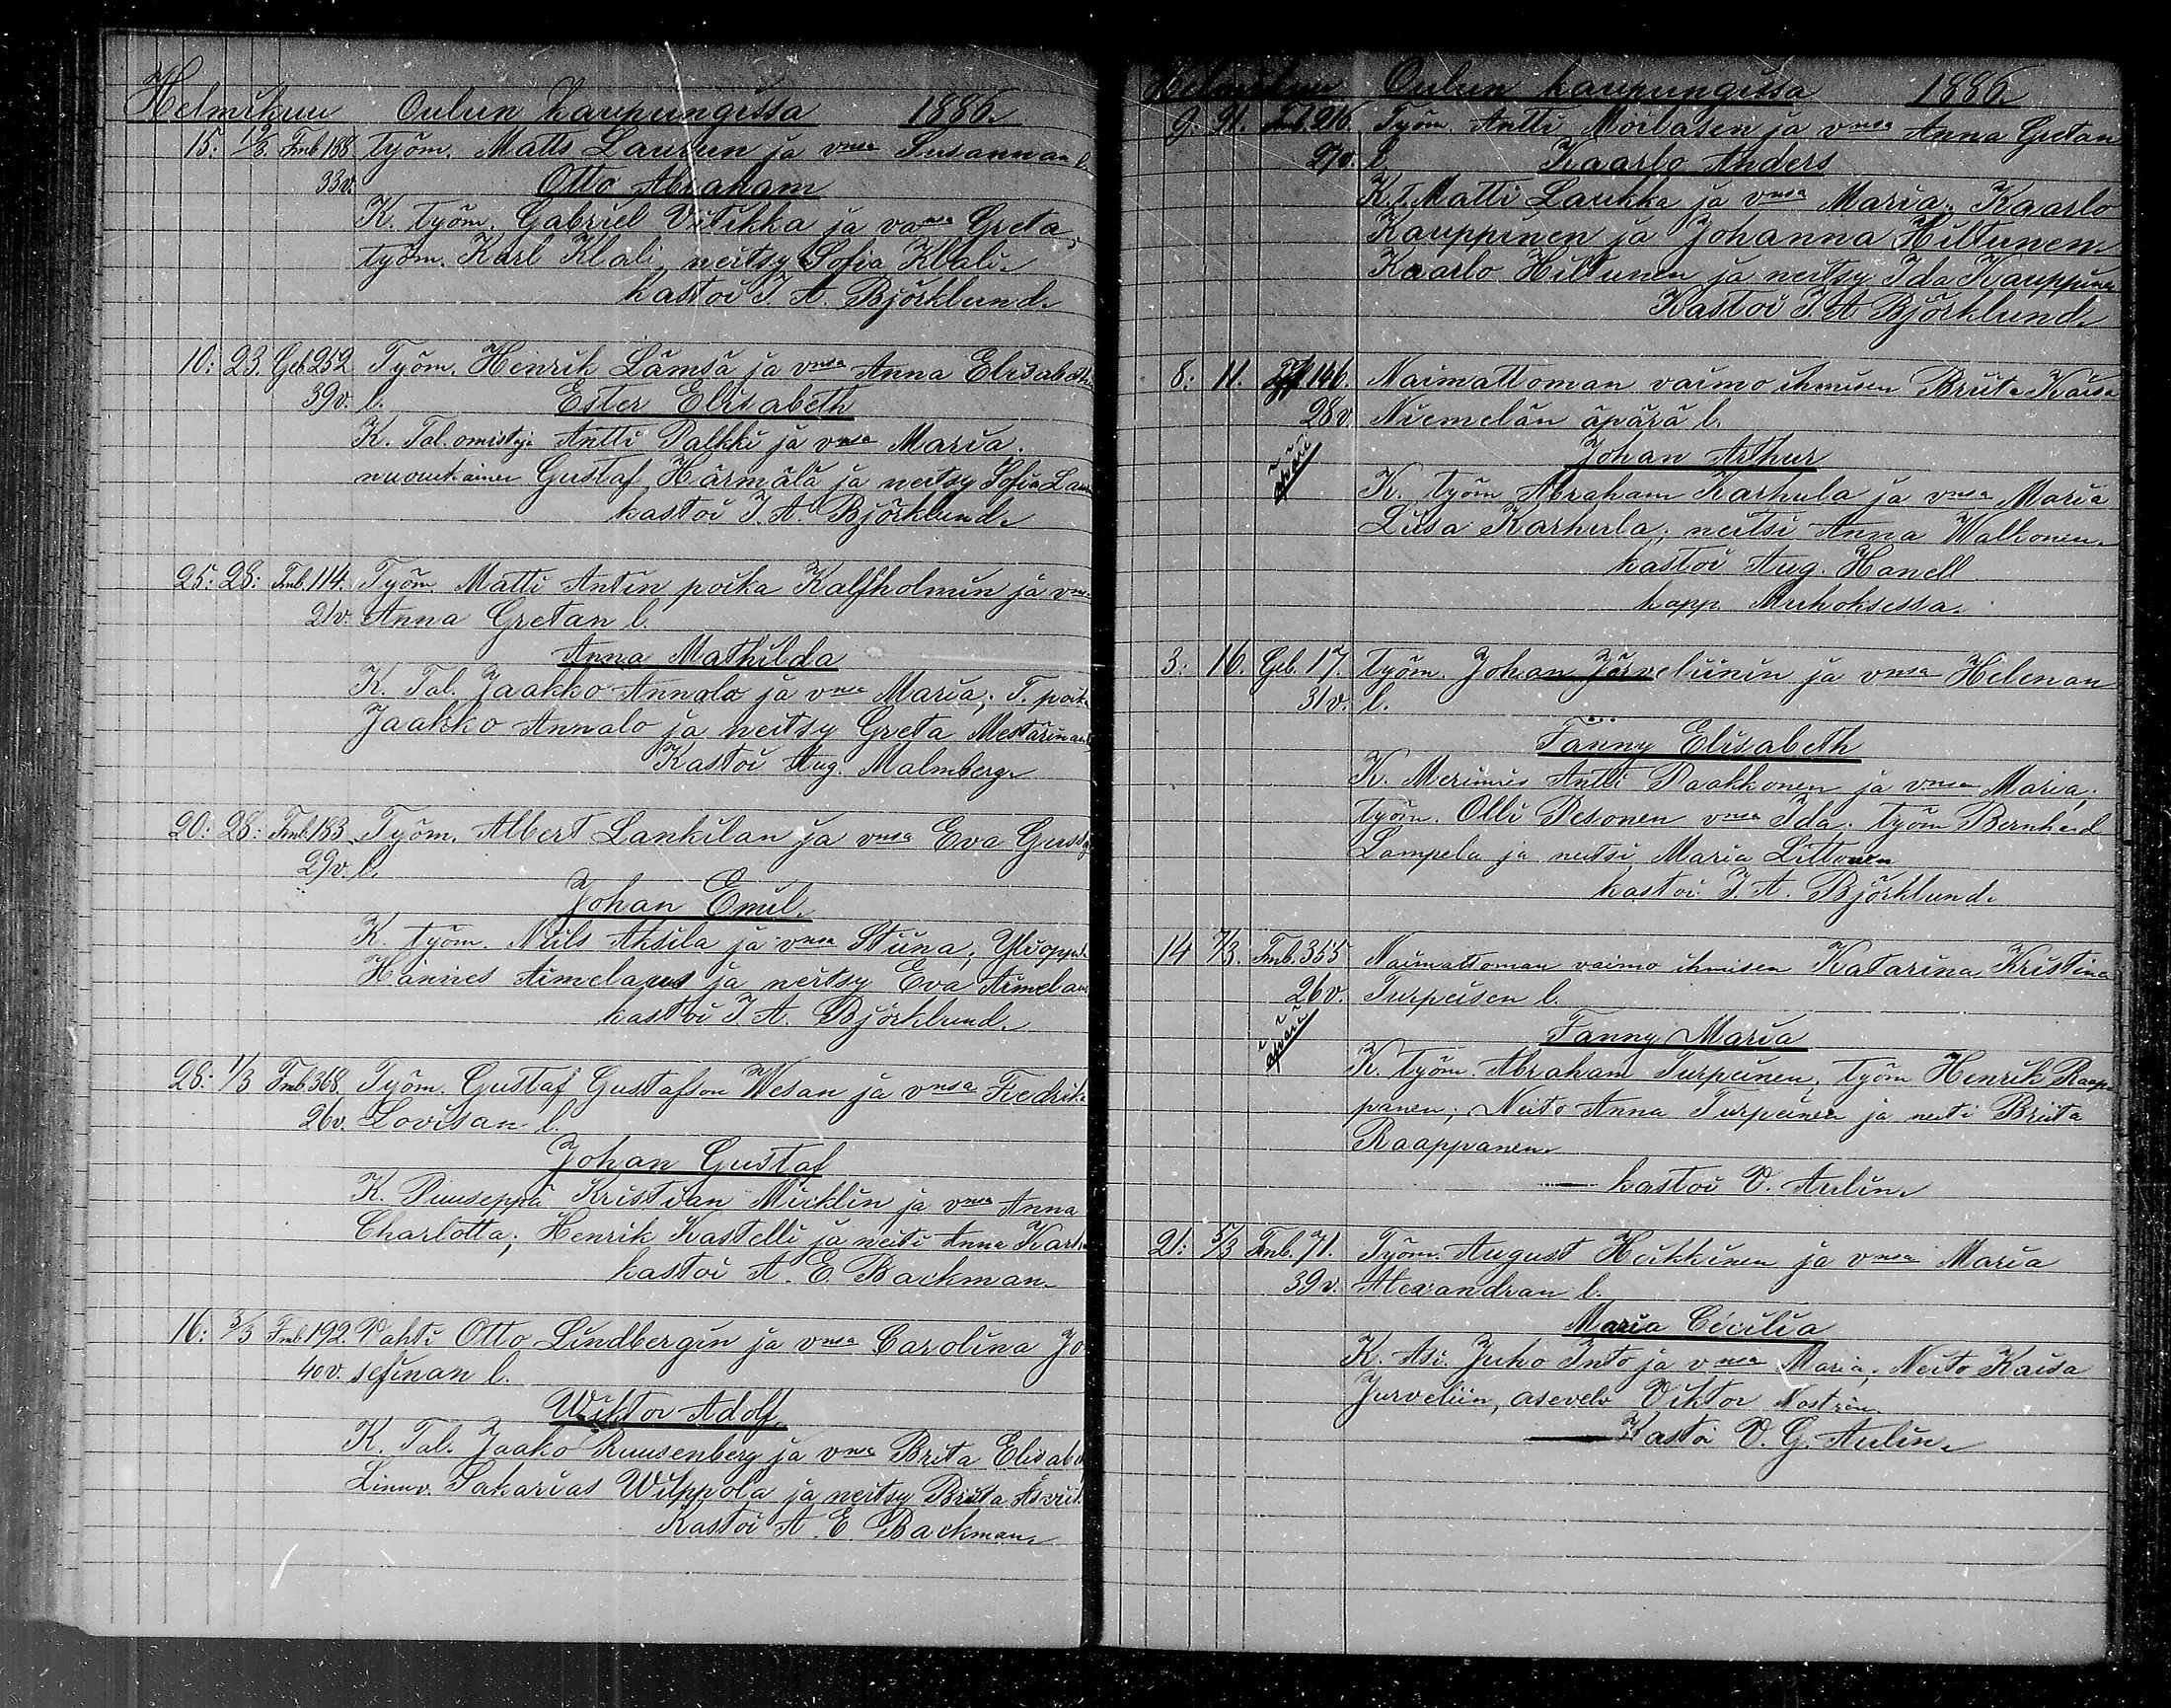 Helmikuu Oulun kaupungissa 1886.
15: 19/3. Fmb 188 työm. Matts Laurun ja vmsa Susannan l.
33v. Otto Abraham
K. työm. Gabriel Vitikka ja vmsa Greta,
työm. Karl Klali, neitsy Sofia Klali.
kastoi J. A. Björklund.
10: 23. Geb 252 Työm. Heinrik Lämsä ja vmsa Anna Elisabethin
39v. l. Ester Elisabeth
K. Tal. omistaja Antti Palkki ja vmsa Maria.
nuorukainen Gustaf Härmälä ja neitsy Sofia
kastoi J. A. Björklund.
25: 28: Fmb. 114. Työm. Matti Antin poika Kalfholmin ja vmsa
21v. Anna Gretan l.
Anna Mathilda
K. Tal. Jaakko Annala ja vmsa Maria; T. poik.
Jaakko Annalo ja neitsy Greta
Kastoi Aug. Malmberg.
20: 28: Fmb. 183 Työm. Albert Lankilan ja vmsa Eva
29v. l.
Johan Emil.
K. työm. Niils Ahsila ja vmsa Stiina; Yliopp.
Hannes Aimelaeus ja neitsy Eva
kastoi J. A. Björklund.
28: 1/3 Fmb. 368 Työm. Gustaf Gustafson Wesan ja vmsa Fredrik
26v. Lovisan l.
Johan Gustaf
K. Puuseppä Kristian Micklin ja vmsa Anna
Charlotta; Henrik Kastelli ja neiti Anna
kastoi A. E. Backman.
16: 3/3 Fmb. 192. Vahti Otto Lindbergin ja vmsa Carolina Jo
40v. sefinan l.
Wiktor Adolf.
K. Tal. Jaako Ruusenberg ja vmsa Brita Elisab.
Linnv. Sakarias Wilppola ja neitsy Brita
Kastoi A. E. Backman.
Helmikuu Oulun kaupungissa 1886.
9: 21. Fmb. 216. Työm. Antti Moilasen ja vmsa Anna Gretan
27v. l Kaarlo Anders
K. T. Matti Laukka ja vmsa Maria. Kaarlo
Kauppinen ja Johanna Hiltunen
Kaarlo Hiltunen ja neitsy Ida Kauppinen
Kastoi J. A Björklund.
8: 11. 146. Naimattoman vaimo ihmisen Briita Kaisa
28v. Niemelän äpärä l.
äpärä
Johan Arthur
K. työm Abraham Karhula ja vmsa Maria
Liisa Karhula; neitsi Anna Walkonen.
kastoi Aug. Hanell
kapp. Muhoksessa.
3: 16. Geb. 17. työm. Johan Järveliinin ja vmsa Helenan
31v. l.
Fanny Elisabeth
K. Merimies Antti Paakkonen ja vmsa Maria;
työm. Olli Pesonen vmsa Ida. työm Bernhard
Lampela ja neitsi Maria Littonen
kastoi J. A. Björklund.
14 7/3. Fmb. 355 Naimattoman vaimo ihmisen Katarina Kristina
26v. Turpeisen l.
äpärä
Fanny Maria
K. työm. Abraham Turpeinen, työm Henrik Raap
panen; Neito Anna Turpeinen ja neiti Briita
Raappanen.
kastoi V. Aulin.
21: 5/3 Fmb. 71. Työm. August Heikkinen ja vmsa Maria
39v. Alexandran l.
Maria Cecilia
K. Asi. Juho Into ja vmsa Maria; Neito Kaisa
Jurveliin, asevelv Viktor
Kastoi V. G. Aulin.